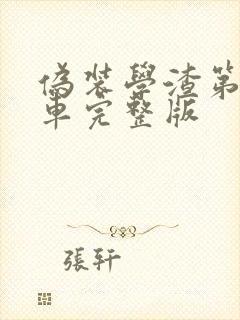 偽裝學渣第
車完整版
張軒